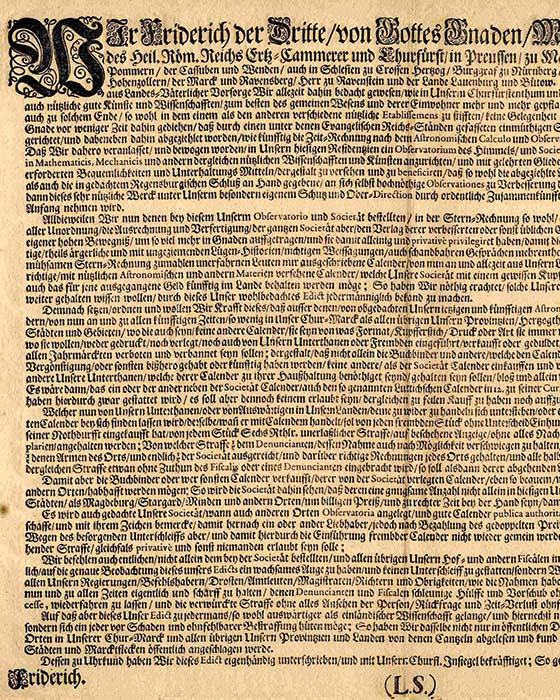 WIr Friderich der Dritte/von Gottes Gnaden/M
des Heil. Röm. Reichs Ertz-Cammerer und Churfürst/in Preussen/zu Ma
Pommern/der Cassuben und Wenden/auch in Schlesien zu Crossen Hertzog/Burggraf zu Nürnberg/
Hohenzollern/der Marck und Ravensberg/Herr zu Ravenstein und der Lande Lauenburg und Bütow
aus Landes-Väterlicher Vorsorge Wir allezeit dahin bedacht gewesen/wie in Unserm Churfürstenthum und
auch nützliche gute Künste und Wissenschafften/zum besten des gemeinen Wesens und derer Einwohner mehr und mehr gepfla
auch zu solchem Ende/so wohl in dem einem als den anderen verschiedene nützliche Etablissemens zu stifften/keine Gelegenheit
Gnade vor weniger Zeit dahin gediehen/daß durch einen unter denen Evangelischen Reichs-Ständen gefasseten einmüthigen
gerichtet/und daheneben dahin abgeziehlt worden/wie künfftig die Zeit-Rechnung nach dem Astronomischen Calculo und Observ
Daß Wir dahero veranlasset/und bewogen worden/in Unsern hiesigen Residentzien ein Observatorium des Himmels/und Socie
in Mathematicis, Mechanicis und andern dergleichen nützlichen Wissenschafften und Künsten anzurichten/und mit gelehrten Gliede
erforderten Bequemlichkeiten und Unterhaltungs Mitteln/dergestalt zu versehen und zu beneficiren/daß so wohl die abgeziehlte
als auch die in gedachtem Regensburgischen Schluß an Hand gegebene/an sich selbst hochnöthige Observationes zu Verbesserung
dann dieses sehr nützliche Werck unter Unserm besondern eigenem Schutz und Ober-Direction durch ordentliche Zusammenkünffte
Anfang nehmen wird.
Alldieweilen Wir nun denen bey diesem Unserm Observatorio und Societät bestellten/in der Stern-Rechnung so wohl/
aller Unordnung/die Ausrechnung und Verfertigung/der gantzen Societät aber/den Verlag derer verbesserten oder sonst üblichen
eigener hohen Bewegniß/um so viel mehr in Gnaden auffgetragen/und sie damit alleinig und privative privilegiret haben/damit
tige/theils ärgerliche und mit ungeziemenden Lügen-Historien/nichtigen Weissagungen/auch schandbahren Gesprächen mehrenthe
mühsamen Stern-Rechnung zumahlen unerfahrnen Leuten nur ausgeschriebene Calender/von nun an und allezeit aus Unsern La
richtige/mit nützlichen Astronomischen und andern Materien versehene Calender/welche Unsere Societät mit einem gewissen Kun
auch das für jene ausgegangene Geld künfftig im Lande behalten werden möge; So haben Wir nöthig erachtet/solche Unsere
weiter gehalten wissen wollen/durch dieses Unser wohlbedachtes Edict jedermänniglich bekand zu machen.
Demnach setzen/ordnen und wollen Wir Krafft dieses/daß ausser denen/von obgedachten Unsern ietzigen und künfftigen Astron
dern/von nun an und zu allen künfftigen Zeiten/so wenig in Unser Chur-Marck als allen übrigen Unsern Provintzien/Hertzogth
Städten und Gebieten/wo die auch seyn/keine andere Calender/sie seyn von was Format, Kupfferstich/Druck oder Art sie immer
wo sie wollen/weder gedruckt/noch verlegt/noch auch von Unsern Unterthanen oder Frembden eingeführt/verkaufft oder geduldet/
allen Jahrmärckten verboten und verbannet seyn sollen; dergestalt/daß nicht allein die Buchbinder und andere/welche den Calend
Vergönstigung/oder sonsten bißhero gehabt oder künfftig haben werden/keine andere/als der Societät Calender einkauffen und v
andere Unsere Unterthanen/welche derer Calender zu ihrer Haußhaltung benöthiget seyn/gehalten seyn sollen/bloß und allein
Es wäre dann/daß ein oder der ander neben der Societät Calender/auch den so genannten Lüttichischen Calender in 12. zu seiner Curi
haben hierdurch zwar gestattet wird/es soll aber dennoch keinem erlaubt seyn/dergleichen zu feilen Kauff zu haben noch auffzu
Welcher nun von Unsern Unterthanen/oder von Auswärtigen in Unsern Landen/denen zu wider zu handeln sich unterstehen/oder
ten Calender bey sich finden lassen wird/derselbe/wañ er mit Calendern handelt/sol von jeden frembden Stück ohne Unterscheid Einhund
seiner Nothdurfft eingekaufft hat/von jedem Stück Sechs Rthlr. unerläßlicher Straffe/auff beschehene Anzeige/ohne alles O
plarien/angehalten werden; Von welcher Straffe ⅓ dem Denuncianten/dessen Nahme auch nach Möglichkeit verschwiegen zu halten
⅓ denen Armen des Orts/und endlich ⅓ der Societät ausgereicht/und darüber richtige Rechnungen jedes Orts gehalten/und alle halb
dergleichen Straffe etwan ohne Zuthun des Fiscals oder eines Denuncianten eingebracht wird/so soll alsdann derer abgehenden
Damit aber die Buchbinder oder wer sonsten Calender verkaufft/derer von der Societät verlegten Calender/eben so bequem/n
andern Orten/habhafft werden mögen; So wird die Societät dahin sehen/daß deren eine gnugsame Anzahl nicht allein in hiesigen U
Städten/als Magdeburg/Stargard/Minden und andern Orten/um billigen Preiß/und zu rechter Zeit bey der Hand seyn/dam
Es wird auch gedachte Unsere Societät/wann auch anderen Orten Observatoria angelegt/und gute Calender publica authorit
schaffe/und mit ihrem Zeichen bemercke/damit hernach ein oder ander Liebhaber/jedoch nach Bezahlung des gedoppelten Preis
Wegen des besorgenden Unterschleiffs aber/und damit hierdurch die Einführung frembder Calender nicht wieder gemein werde
hender Straffe/gleichfals privative und sonst niemanden erlaubt seyn solle;
Wir befehlen auch endlichen/nicht allein dem bey der Societät bestellten/und allen übrigen Unsern Hof- und andern Fiscälen in
lich/auf die genaue Beobachtung dieses unsers Edicts ein wachsames Auge zu haben/und keinen Unterschleiff zu gestatten/sondern W
allen Unsern Regierungen/Befehlshabern/Drosten/Amtleuten/Magistraten/Richtern und Obrigkeiten/wie die Nahmen habe
nun und zu allen Zeiten eigentlich und schärff zu halten/denen Denuncianten und Fiscalen schleunige Hülffe und Vorschub oh
cesse, wiederfahren zu lassen/und die verwürckte Straffe ohne alles Ansehen der Person/Rückfrage und Zeit-Verlust ohn
Auf daß aber dieses Unser Edict zu jedermans/so wohl auswärtiger als einländischer Wissenschafft gelange/und hiernechst n
sondern sich ein jeder vor Schaden und ohnfehlbarer Bestraffung hüten möge; So haben Wir dasselbe nicht nur in öffentlichen D
Orten in Unserer Chur-Marck und allen übrigen Unsern Provintzien und Landen von denen Cantzeln abgelesen und kund
Städten und Marckflecken öffentlich angeschlagen werde.
Dessen zu Uhrkund haben Wir dieses Edict eigenhändig unterschrieben/und mit Unserm Churfl. Insiegel bekräfftiget; So g
Friderich.
(L.S.)